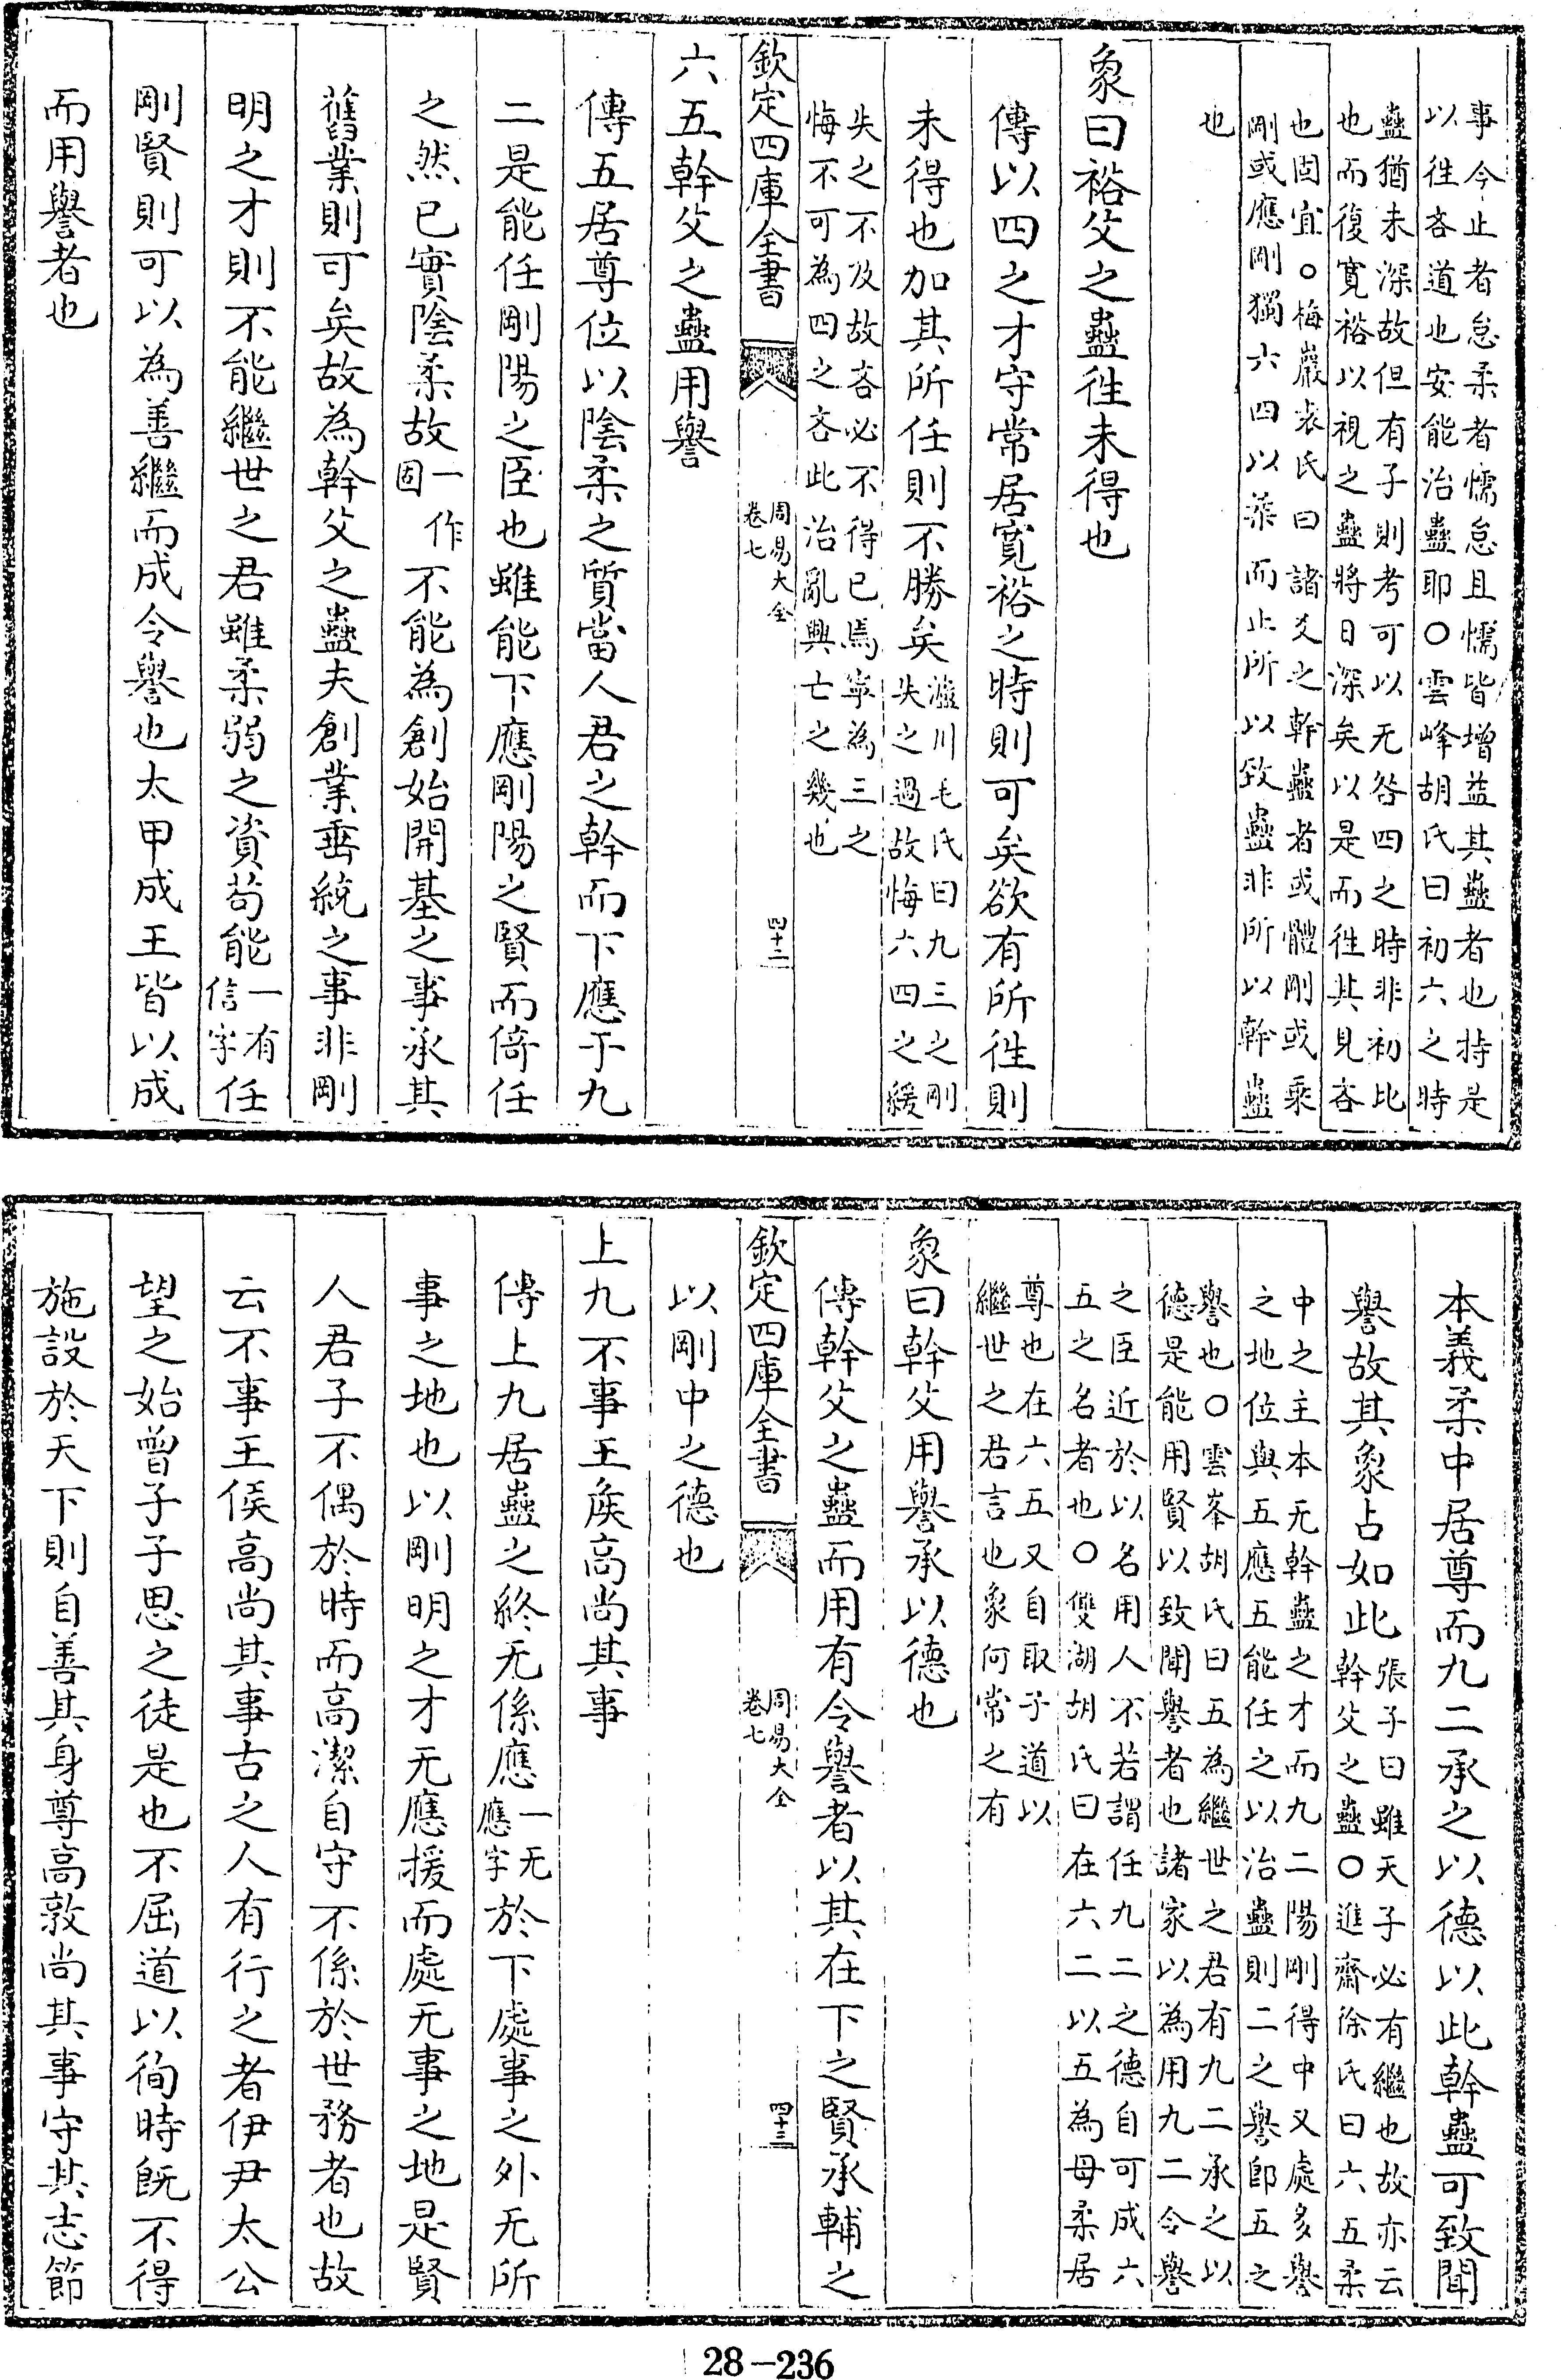 事今止者怠柔者懦怠且懦皆增益其蠱者也持是
以徃吝道也安能治蠱耶○雲峰胡氏曰初六之時
蠱猶未深故但有子則考可以无咎四之時非初比
也而復寛裕以視之蠱將日深矣以是而徃其見吝
也固宜○梅巖袁氏曰諸爻之幹蠱者或體剛或乘
剛或應剛獨六四以柔而止所以致蠱非所以幹蠱
也
象曰裕父之蠱徃未得也
傳以四之才守常居寛裕之時則可矣欲有所徃則
未得也加其所任則不勝矣
滋川毛氏曰九三之剛
失之過故悔六四之緩
失之不及故吝必不得已焉寧為三之
悔不可為四之吝此治亂興亡之幾也
欽定四庫全書
周易大全
卷七
四十二
六五幹父之蠱用譽
傳五居尊位以陰柔之質當人君之幹而下應于九
二是能任剛陽之臣也雖能下應剛陽之賢而倚任
之然已實陰柔故一作固不能為創始開基之事承其
舊業則可矣故為幹父之蠱夫創業垂統之事非剛
明之才則不能繼世之君雖柔弱之資苟能一有信字任
剛賢則可以為善繼而成令譽也太甲成王皆以成
而用譽者也
本義柔中居尊而九二承之以德以此幹蠱可致聞
譽故其象占如此
張子曰雖天子必有繼也故亦云
幹父之蠱○進齋徐氏曰六五柔
中之主本无幹蠱之才而九二陽剛得中又處多譽
之地位與五應五能任之以治蠱則二之譽即五之
譽也○雲峯胡氏曰五為繼世之君有九二承之以
德是能用賢以致聞譽者也諸家以為用九二令譽
之臣近於以名用人不若謂任九二之德自可成六
五之名者也○雙湖胡氏曰在六二以五為母柔居
尊也在六五又自取子道以
繼世之君言也象何常之有
象曰幹父用譽承以德也
傳幹父之蠱而用有令譽者以其在下之賢承輔之
欽定四庫全書
周易大全
卷七
四十三
以剛中之德也
上九不事王矦高尚其事
傳上九居蠱之終无係應一无應字於下處事之外无所
事之地也以剛明之才无應援而處无事之地是賢
人君子不偶於時而高潔自守不係於世務者也故
云不事王侯高尚其事古之人有行之者伊尹太公
望之始曽子子思之徒是也不屈道以徇時既不得
施設於天下則自善其身尊高敦尚其事守其志節
28-236